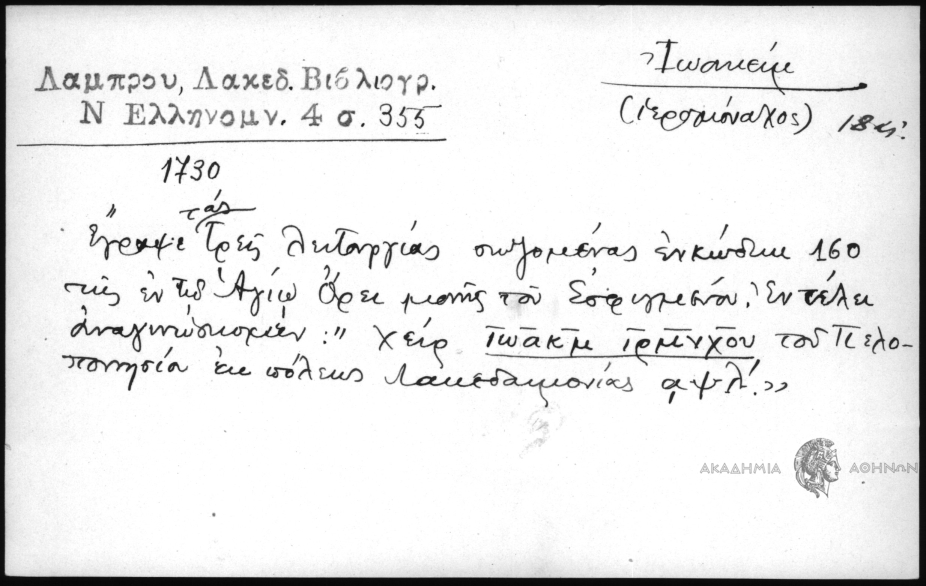 Λαμπρου, Λακεδ. Βιβλιογρ.
Ν Ελληνομν. 4 σ. 355
Ἰωακείμ
(ἱερομόναχος) 18 αἰ.
1730
Ἔγραψε τὰς Τρεῖς λειτουργίας σωζομένας ἐν κώδικι 160
τῆς ἐν τῷ Ἁγίῳ Ὄρει μονῆς τοῦ Ἐσφιγμένου. Ἐν τέλει
ἀναγινώσκομεν: " Χεὶρ ἰωακμ ἰρμνχου τοῦ Πελο-
ποννησίου ἐκ πόλεως Λακεδαιμονίας ͵αψλʹ.»
ΑΚΑΔΗΜΙΑ ΑΘΗΝΩΝ